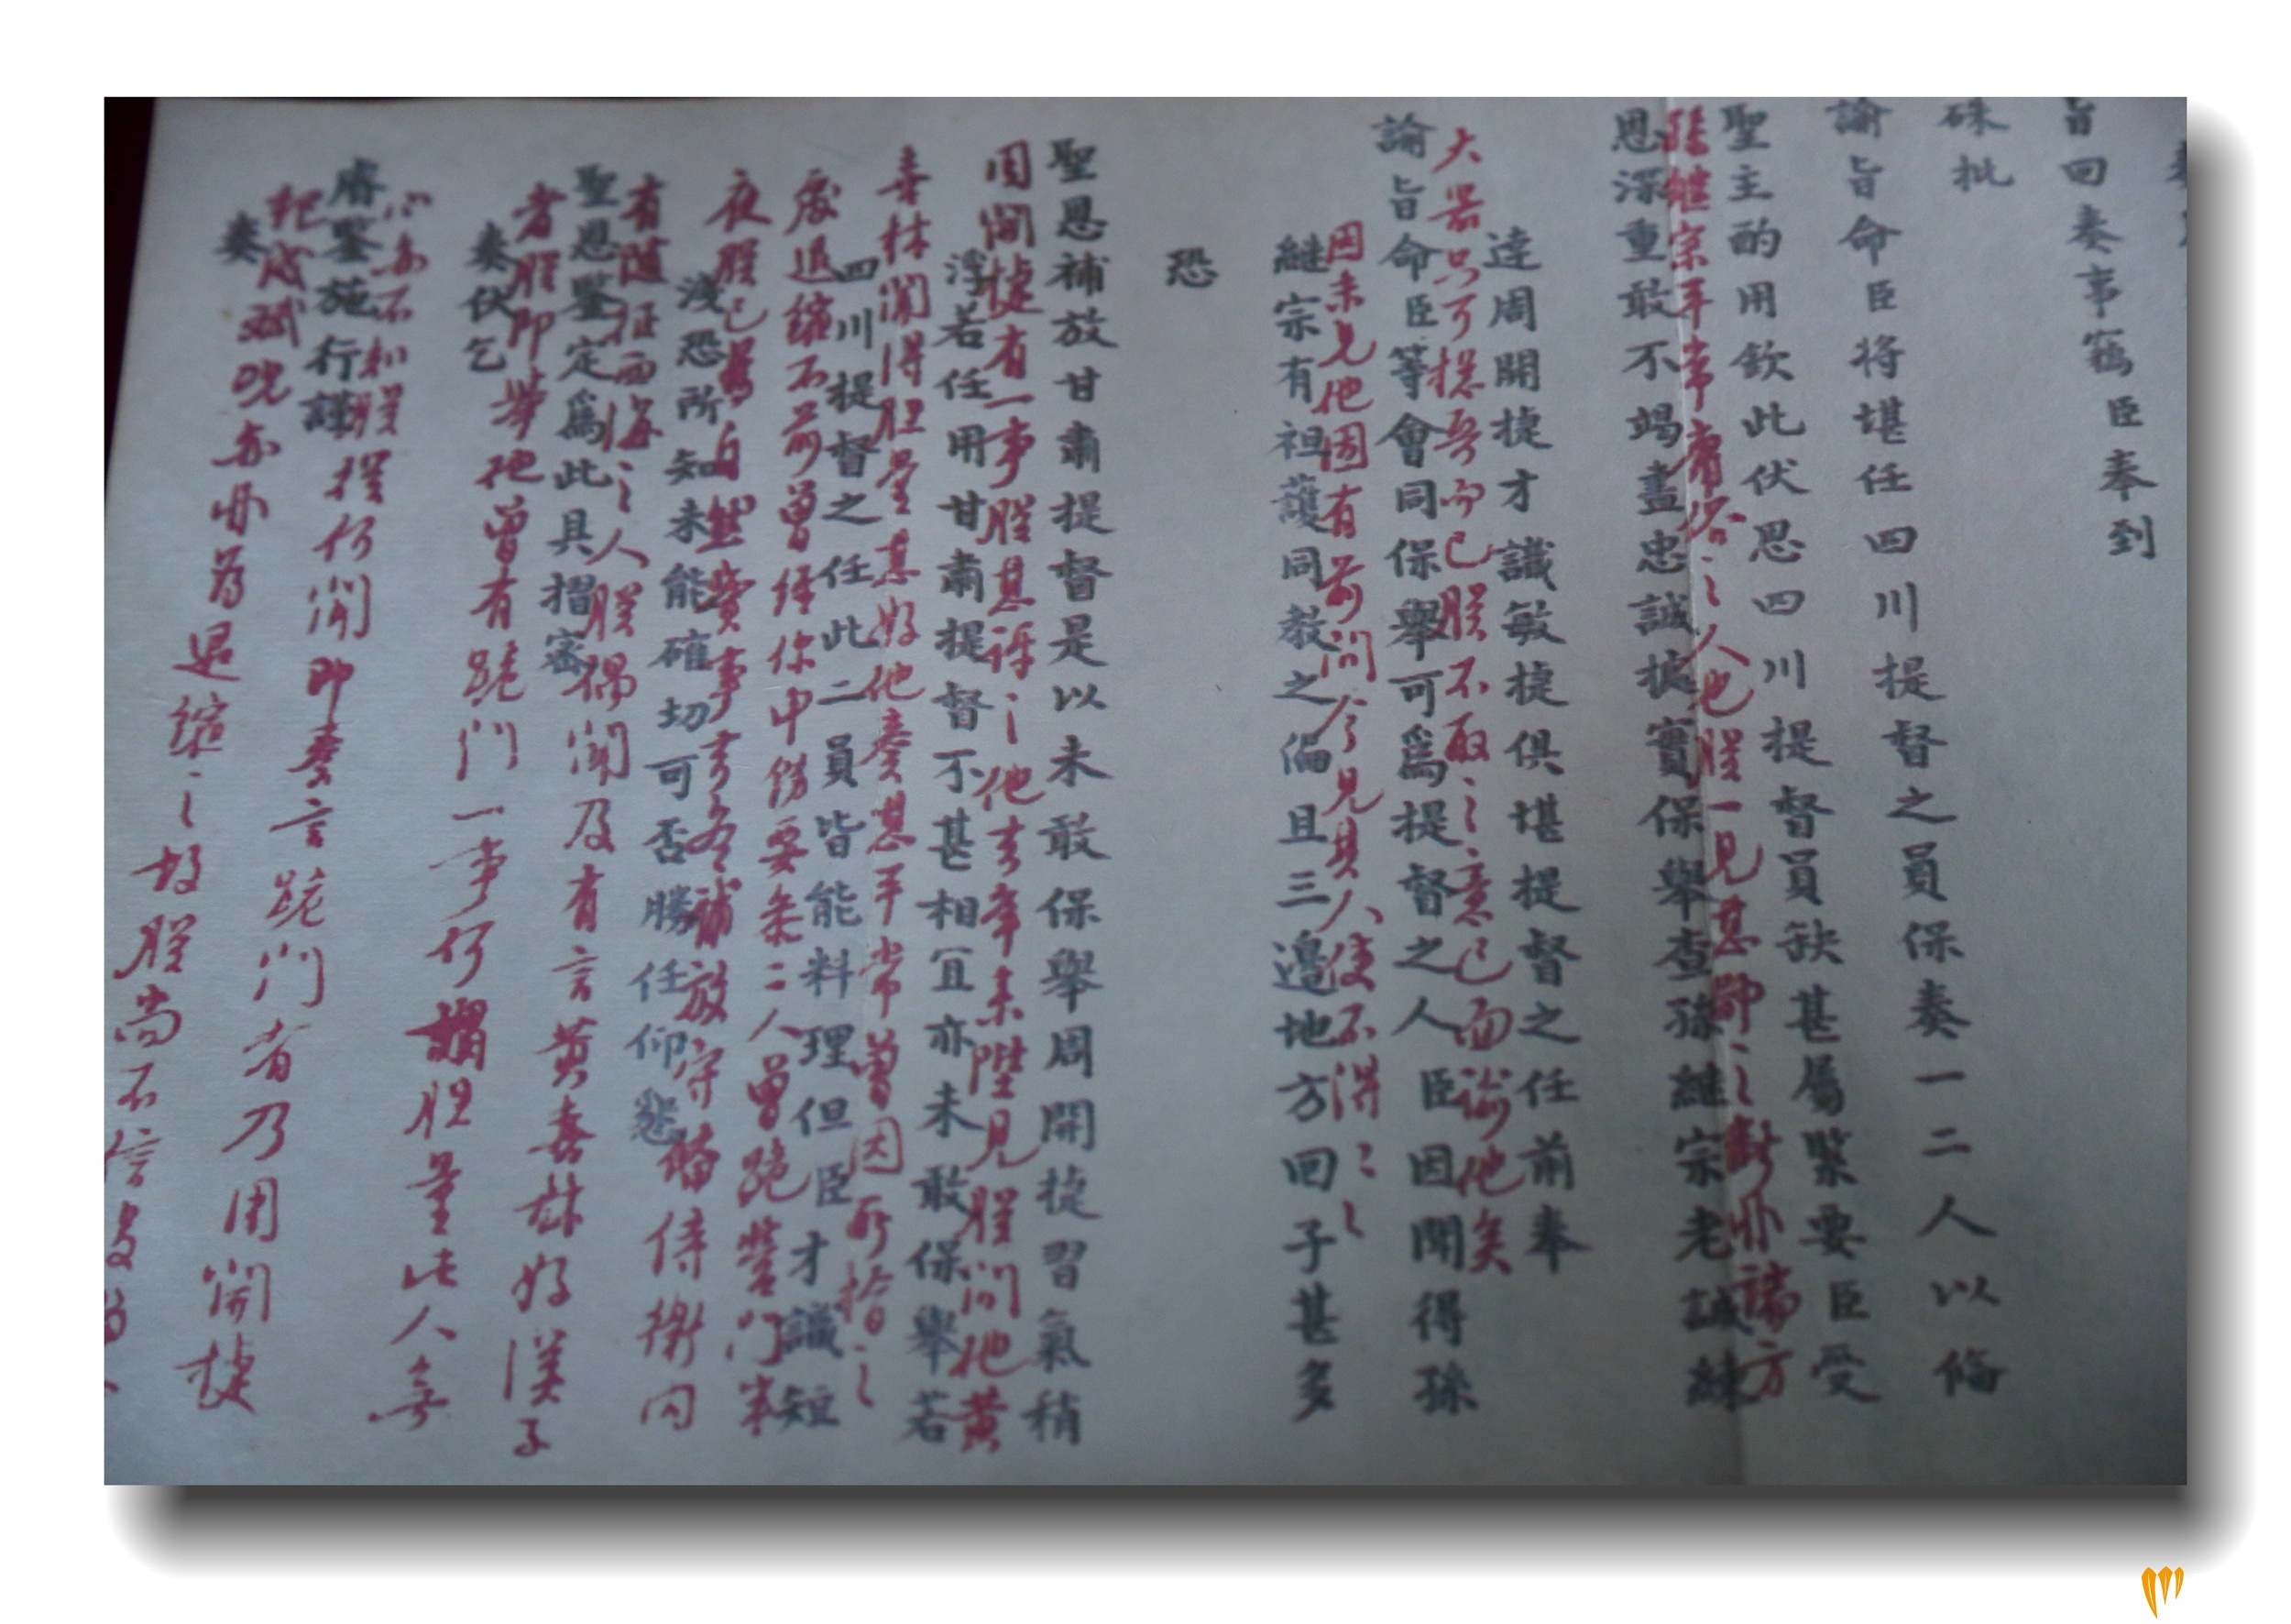 旨回奏事竊臣奉到
硃批
諭旨命臣将堪任四川提督之員保奏一二人以俻
聖主酌用欽此伏思四川提督員缺甚屬緊要臣受
孫繼宗平常庸俗之人也朕一見甚鄙之斷非諸方
恩深重敢不竭盡忠誠據實保舉查孫繼宗老誠練
達周開捷才識敏捷俱堪提督之任前奉
大器只可摠兵而已朕不取之意已面諭他矣
諭旨命臣等會同保舉可為提督之人臣因聞得孫
因未見他因有前問今見其人使不得
繼宗有袒護同教之偏且三邊地方回子甚多
恐
聖恩補放甘肅提督是以未敢保舉周開捷習氣稍
周開捷有一事朕甚訝之他去年未陛見朕問他黃
浮若任用甘肅提督不甚相宜亦未敢保舉若
喜林聞得胆量甚好他奏甚平常曽因所捨之
四川提督之任此二員皆能料理但臣才識短
處退縮不前曽經你中傷要參二人曽跪營門求
淺恐所知未能確切可否勝任仰懇
夜朕已為自然賣事去冬補放守備侍衛内
聖恩鑒定為此具摺密
有隨征西海之人朕偶聞及有言黃喜林好漢子
奏伏乞
者朕即举他曽有跪門一事何謂胆量此人奏
睿鑒施行謹
心亦不知朕從何聞即奏言跪門者乃周開捷
奏
紀成斌唲亦非為退縮之故朕尚不信